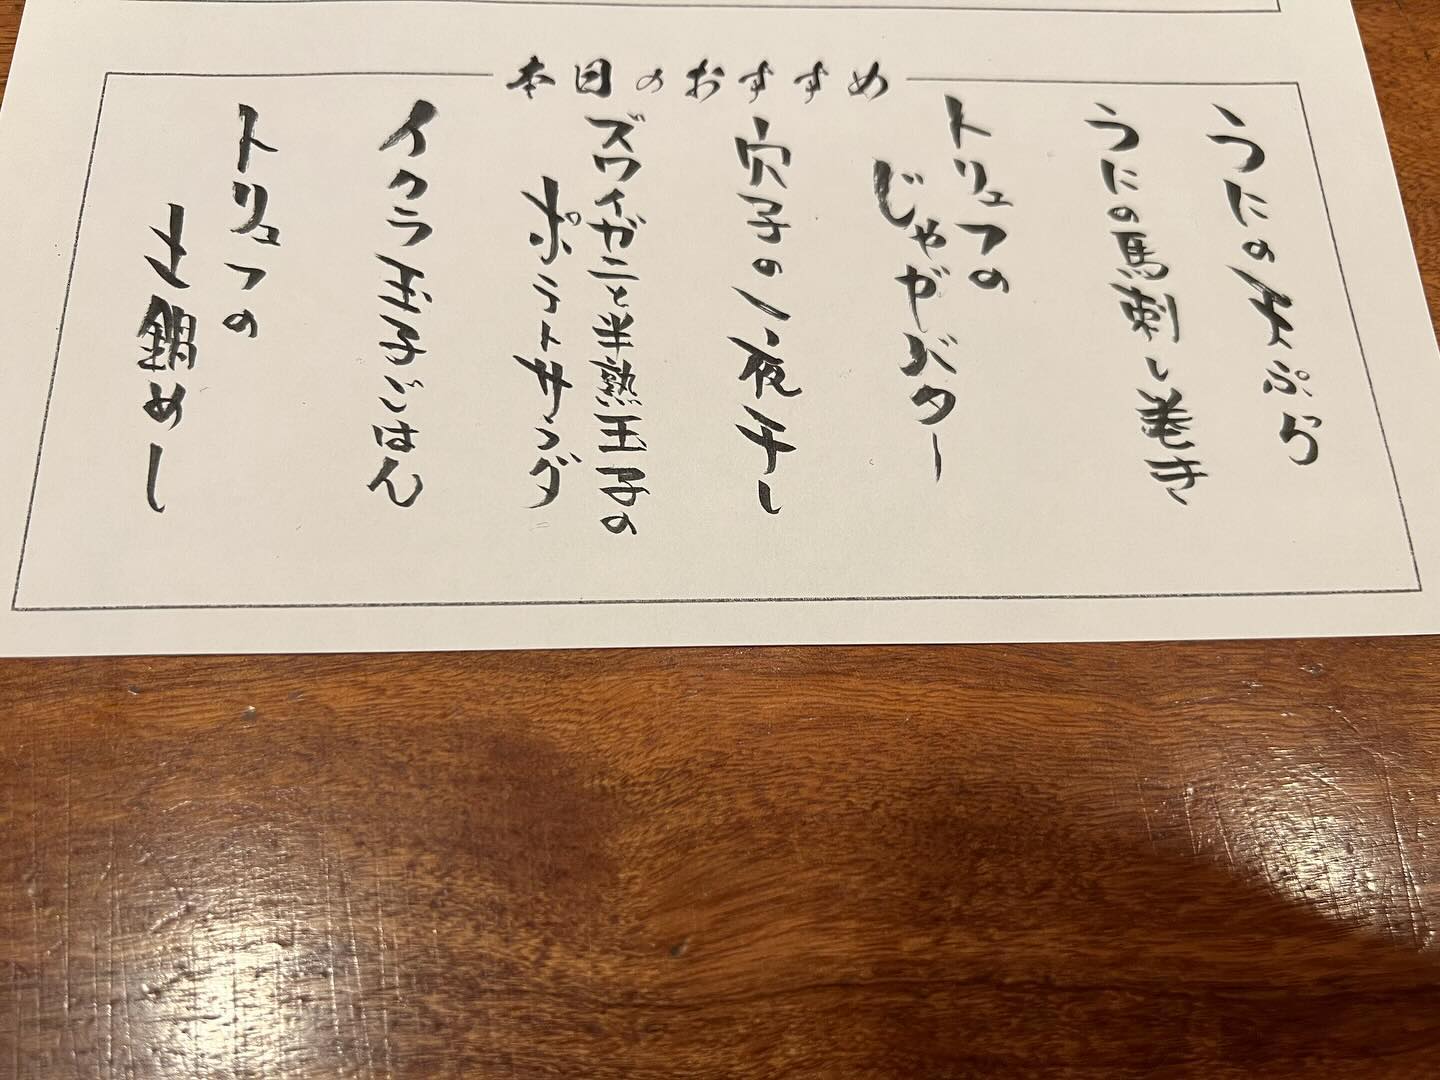 本日のおすすめ
うにの天ぷら
うにの馬刺し巻き
トリュフの
じゃがバター
穴子の一夜干し
ズワイガニと半熟玉子の
ポテトサラダ
イクラ玉子ごはん
トリュフの
土鍋めし